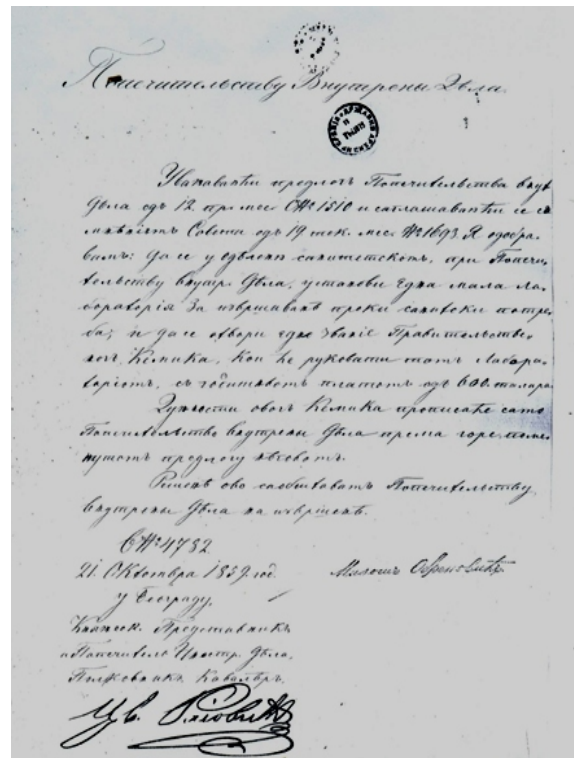 Попечительству Внутрены Дѣла.
Уважаваюћи предлогъ Попечительства внут
Дѣла одъ 12. пр. мес. С№ 1510 и саглашаваюћи се са
мнѣніемъ Совета одъ 19 тек. мес. №1693. Я одобра
вамъ: да се у одѣленю санитетскомъ, при Попечи
тельству внутр. Дѣла, установи една мала ла
бораторія за извршаванѣ проки санитски потре
ба; и да се отвори едно званіе Правительстве
ногъ Кемика, кои ће руковати томъ Лабора
торіомъ, съ годишньомъ платомъ одъ 600. талира
Дужности овогъ Кемика прописаће само
Попечительство внутрены Дѣла према горе поме
нутомъ предлогу нѣговомъ.
Решенѣ ово саобштавамъ Попечительству
внутрены Дѣла на извршенѣ.
С№ 4732
21. Октомвра 1859. год.
Милошъ Обреновићъ
у Београду.
Княжеск. Представникъ
и Попечитель Иностр. Дѣла,
Полковникъ Кавалѣръ,
Цв. Раіовићъ